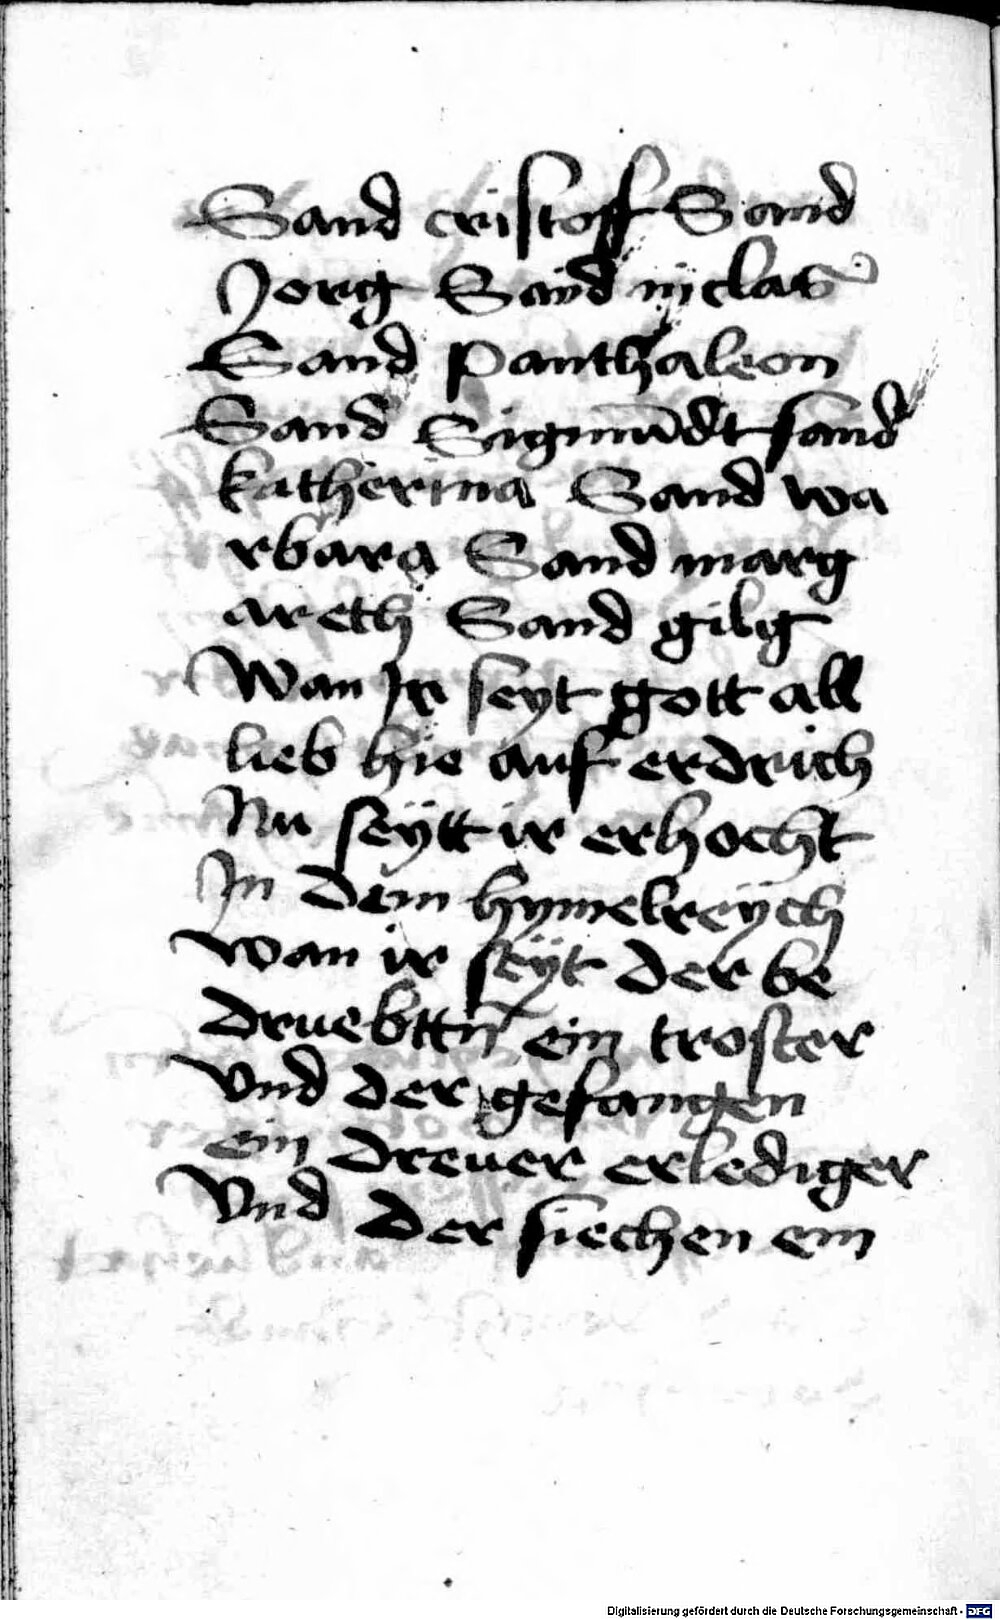 Sand cristoff Sand
Jorg Sand nyclas
Sand Panthaleon
Sand Sigmūdt sand
katherina Sand wa
rbara Sand marg
areth Sand gilig
Wan Ir seyt gott all
lieb hie auf erdrich
Nu seÿtt ir erhocht
In dem hymelreÿch
wan ir seÿt der be
druebttn̄ ein troster
Vnd der gefangen
ein dreuer erlediger
Vnd der siechen ein
Digitalisierung gefördert durch die Deutsche Forschungsgemeinschaft - DFG